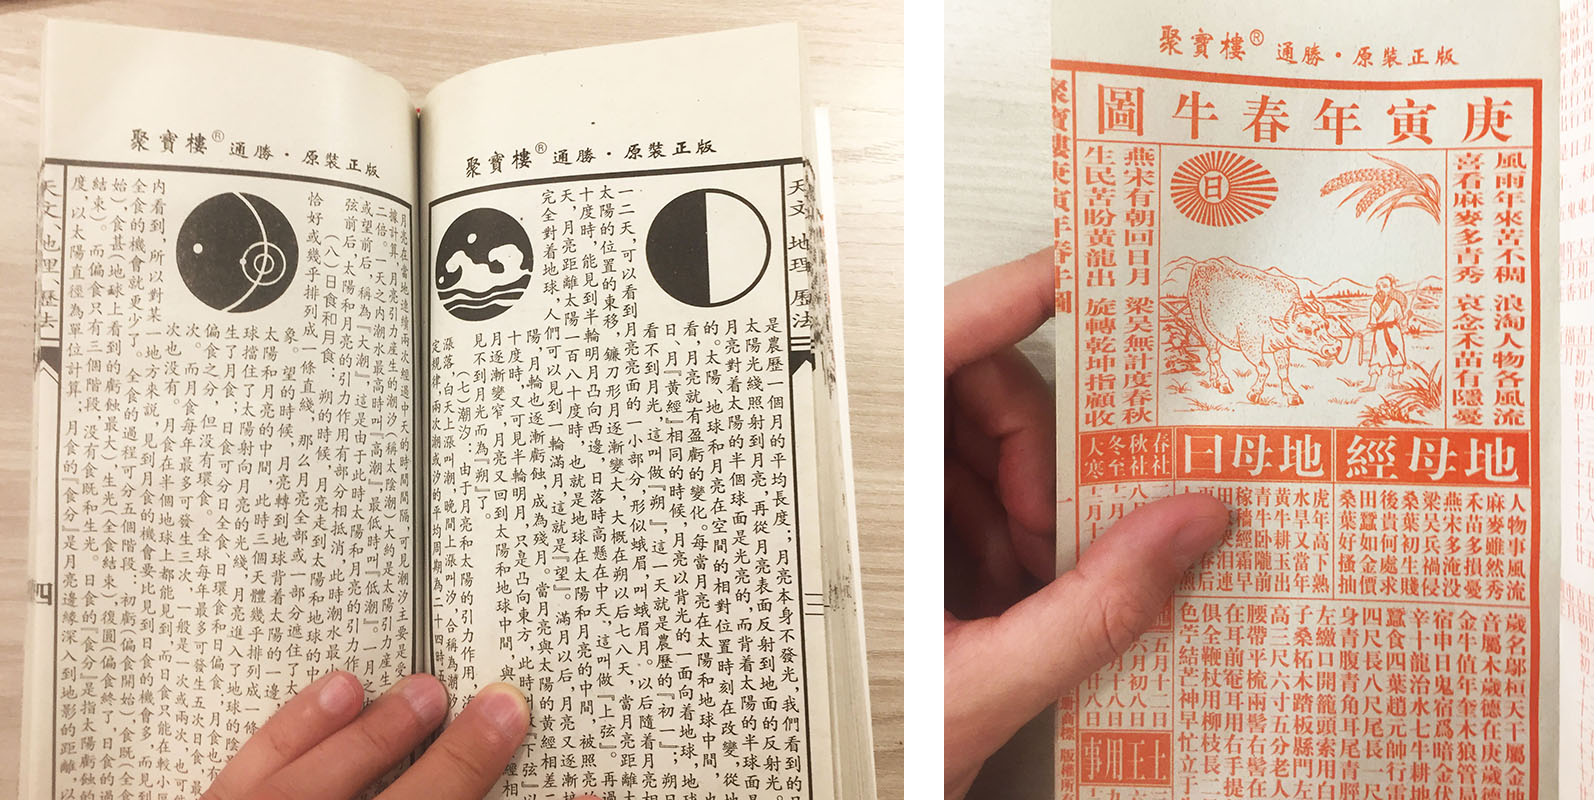 聚寶樓® 通勝·原裝正版
天文、地理、歷法
是農歷一個月的平均長度;月亮本身不發光,我們看到的
太陽光綫照射到月亮,再從月亮表面反射到地面的反射光。
月亮對着太陽的半個球面是光亮的,而背着太陽的半球面是
的。太陽、地球和月亮在空間的相對位置時刻在改變,從地
看,月亮就有盈虧的變化。每當月亮在太陽和地球中間,也
日、月『黃經』相同的時候,月亮以背光的一面向着地球,地
看不到月光,這叫做『朔』,這一天就是農歷的『初一』;
一二天,可以看到月亮亮面的一小部分,形似蛾眉,叫蛾眉月。以后隨着月亮相
太陽的位置的東移,鐮刀形月逐漸變大,大概在朔以后七八天,當月亮距離太
十度時,能見到半輪明月凸向西邊,日落時高懸在中天,這叫做『上弦』。再過
天,月亮距離太陽一百八十度時,也就是地球在太陽和月亮的中間,被照亮的
完全對着地球,人們可以見到一輪滿月,這就是『望』。滿月以后,月亮又逐漸
陽,月輪也逐漸虧蝕,成為殘月。當月亮與太陽的黃經相差二
十度時,又可見半輪明月,只是凸向東方,此時叫『下弦』以
月逐漸變窄,月亮又回到太陽和地球中間,與
見不到月光而為『朔』了。
(七)潮汐:由于月亮和太陽的引力作用,海
漲落,白天上漲叫潮,晚間上漲叫汐,合稱為潮汐。
定規律,兩次潮或汐的平均周期為二十四時五
聚寶樓® 通勝·原裝正版
月亮在當地連續兩次經過中天的時間間隔,可見潮汐主要是受
據計算,月亮引力產生的潮汐(稱太陰潮)大約是太陽引力產生
二倍。一天之內潮水最高時叫『高潮』,最低時叫『低潮』。一月之
或望前后,稱為『大潮』,這是由于此時太陽和月亮的引力作
弦前后,太陽和月亮的引力作用有部分相抵消,此時潮水最小
(八)日食和月食:朔的時候,月亮走到太陽和地球的中
恰好或幾乎排列成一條直綫,那么月亮全部或一部分遮住了太
象。望的時候,月亮轉到地球背着太陽的一邊
太陽和月亮的中間,此時三個天體幾乎排列成一條
球擋住了太陽射向月亮的光綫,月亮進入了地球的陰
生了月食;日食可分日全食、日環食和日偏食,月食也有
偏食之分,但没有環食。全球每年最多可發生五次日食,最
次。而月食每年最多可發生三次,一般是一次或兩次,也可能
次也没有。月食在半個地球上都能見到,而日食只能在較小區
內看到,所以對某一地方來說,見到月食的機會要比見到日食的機會多,而見到
全食的機會就更少了。全食的過程可分五個階段:初虧(偏食開始),食既(全食
始),食甚(地球上看到的虧蝕最大),生光(全食結束),復圓(偏食終了),日食的
結束)。而偏食只有三個階段,没有食既和生光。日食的『食分』是指太陽虧蝕的
度,以太陽直徑為單位計算;月食的『食分』是月亮邊緣深入到地影的距離,以
天文、地理、歷法
四
聚寶樓® 通勝·原裝正版
庚寅年春牛圖
風雨年來苦不稠 浪淘人物各風流
喜看麻麥多青秀 哀念禾苗有隱憂
日
燕宋有朝回日月 梁吴無計度春秋
生民苦盼黃龍出 旋轉乾坤指顧收
聚寶樓庚寅年春牛圖
地母經
人物事風流
麻麥雖然秀
禾苗多損憂
燕宋多淹没
梁吴兵禍侵
桑葉初生賤
後貴何處求
田蠶如金價
桑葉好搔抽
地母曰
虎年高下熟
水旱又當年
黃牛耕玉出
青牛卧隴前
稼穡經霜早
田
哭淚連
更
春后
春社
秋社
冬至
大寒
五月十二日
六月初八日
歲名鄔桓天干屬金地
音屬木歲德在庚歲德
金牛值年奎木狼管局
宿申日鬼宿爲暗金伏
辛十龍治水七牛耕地
蠶食四葉趙元帥行雷
四尺長八尺尾長一尺
身青腹青角耳尾青脛
左繳口開籠頭索用白
子桑柘木踏板縣門左
高三尺六寸五分老人
腰帶平梳兩髻右髻在
在耳前奄耳用右手提
俱全鞭杖用柳枝長二
色苧結苦神早忙立于
土王用事
版權所